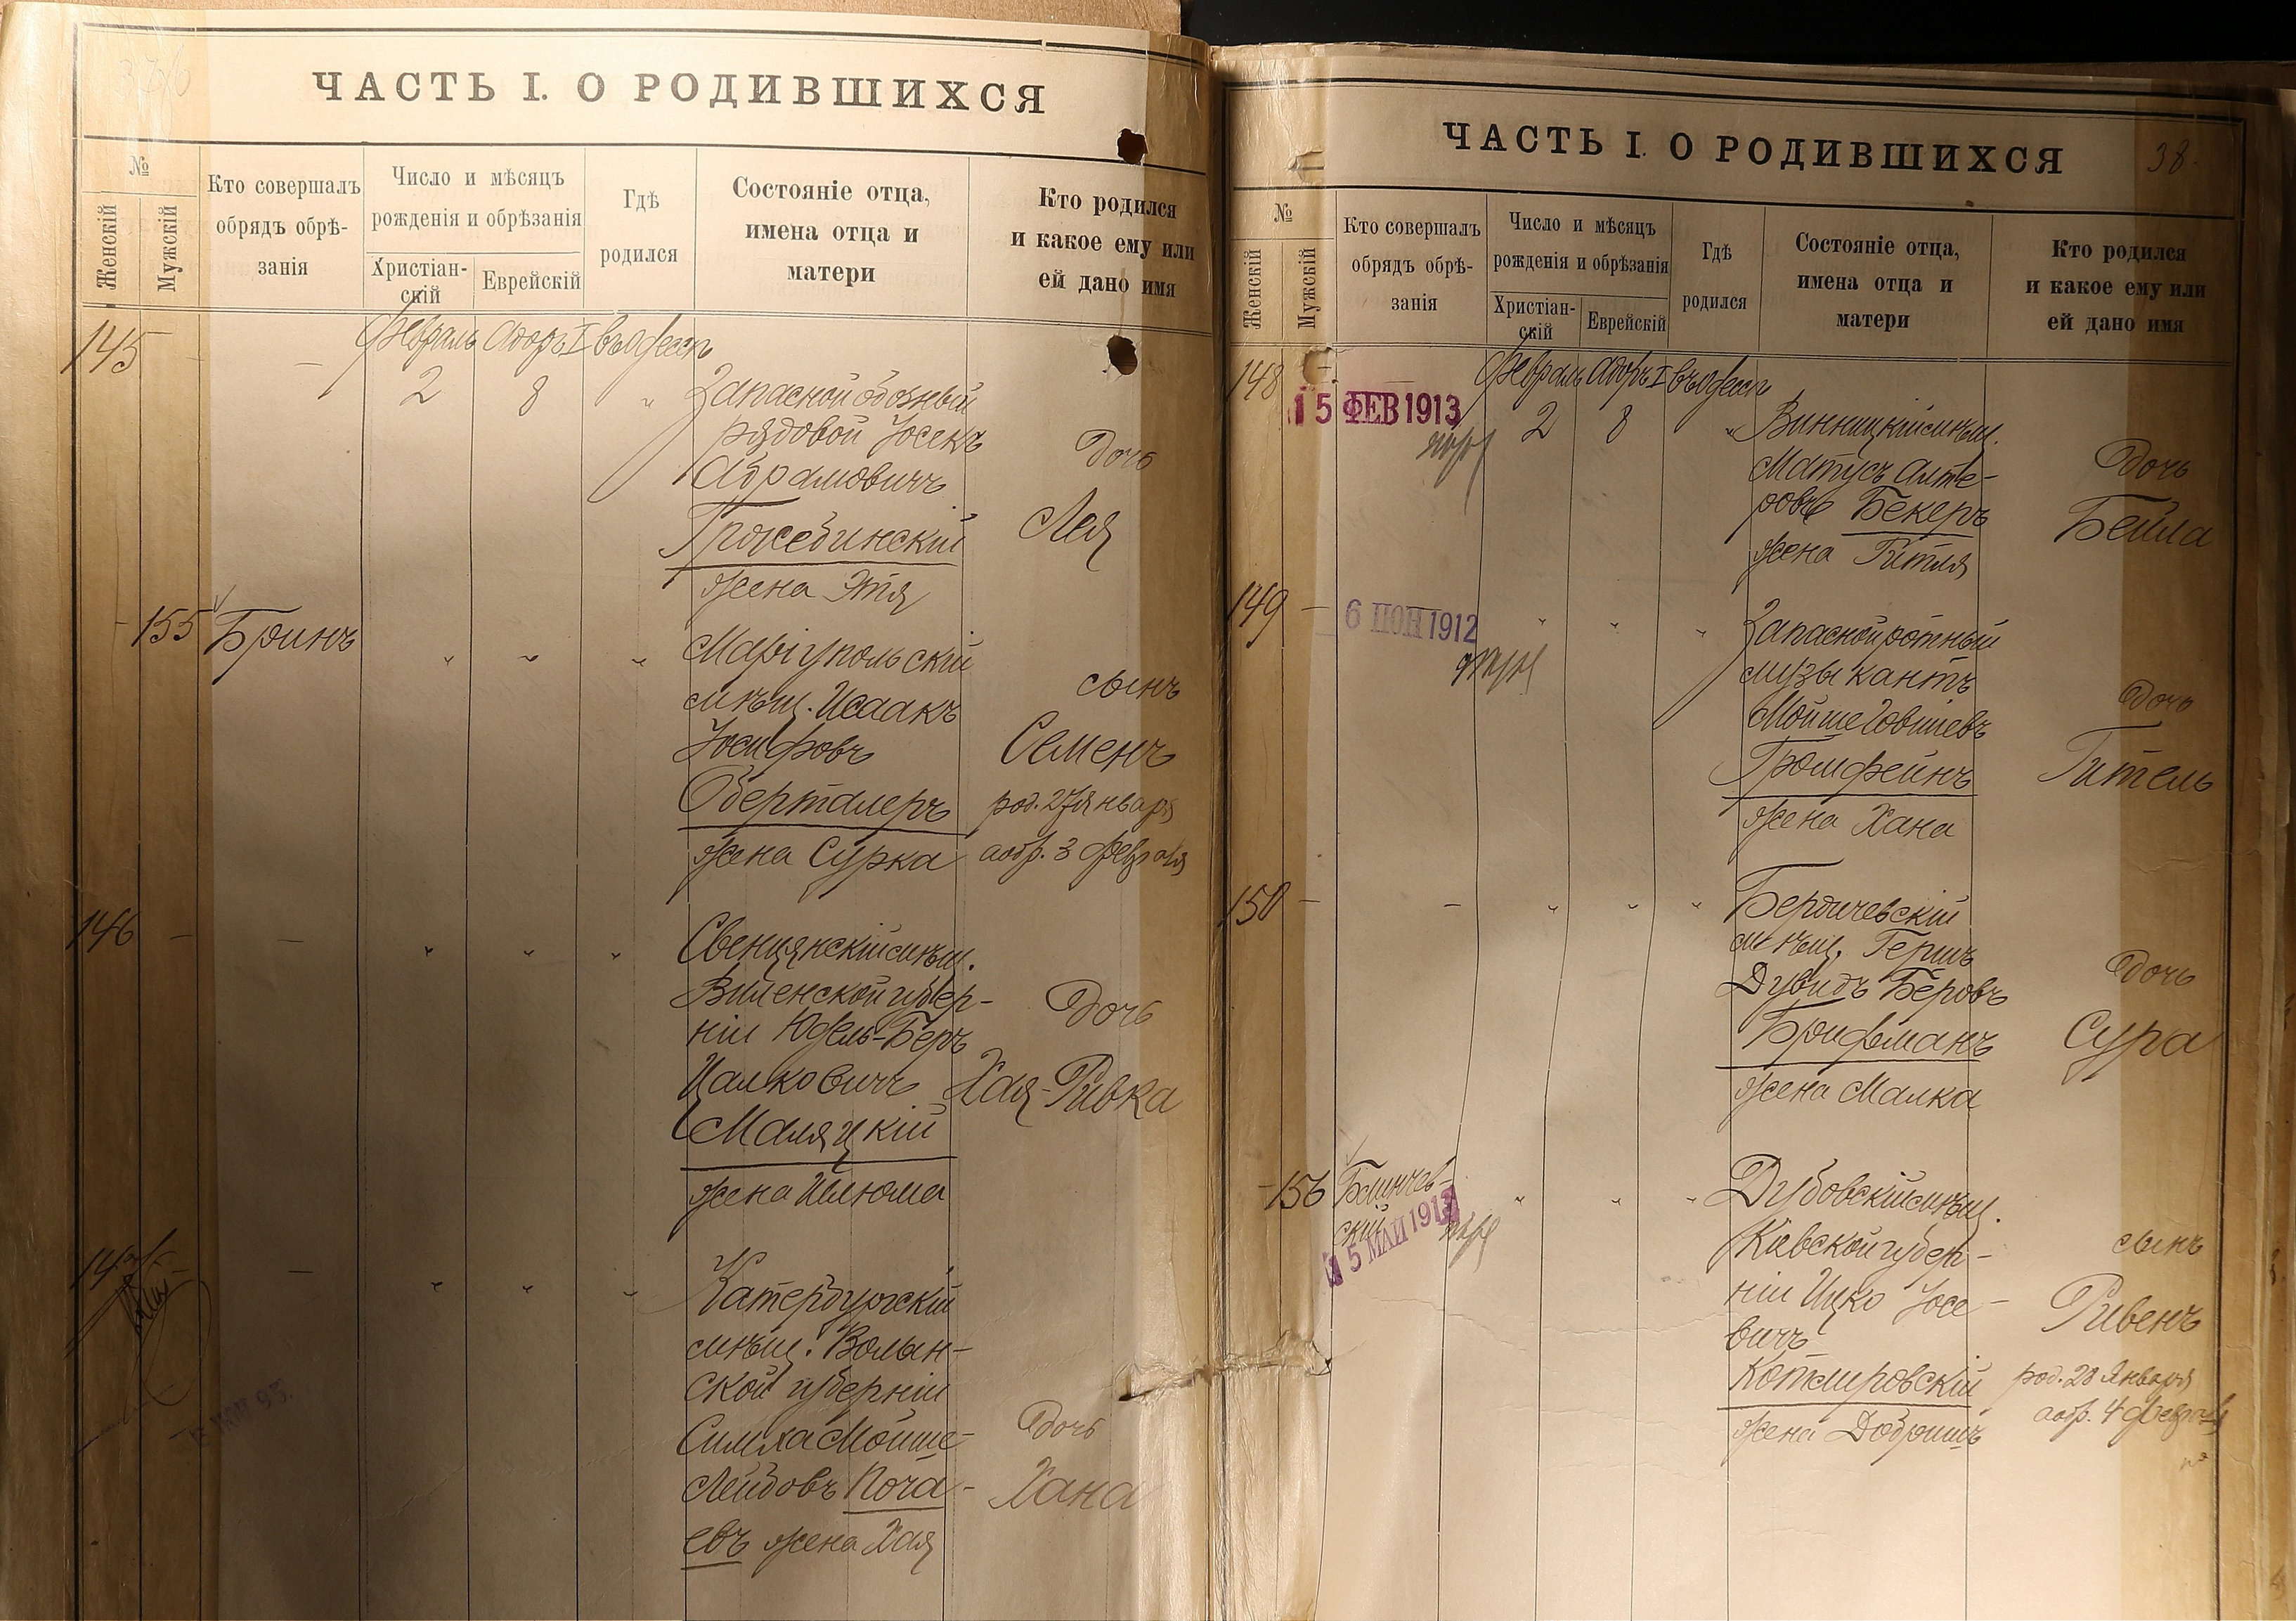 ЧАСТЬ I. О РОДИВШИХСЯ
№
Женскій
Мужскій
Кто совершалъ
обрядъ обрѣ-
занія
Число и мѣсяцъ
рожденія и обрѣзанія
Христіан-
скій
Еврейскій
Гдѣ
родился
Состояніе отца,
имена отца и
матери
Кто родился
и какое ему или
ей дано имя
145 - - Февраль Адаръ I въ Одессѣ
2 8 " Запасной обозный
рядовой Іосекъ
Абрамовичъ
Гржебинскій
жена Этя
дочь
Лея
- 155 Бринъ " " " Маріупольскій
мѣщ. Исаакъ
Іосифовъ
Оберталеръ
жена Сурка
сынъ
Семенъ
род. 27 января
а обр. 3 февраля
146 - - " " " Свенцянскій мѣщ.
Виленской губер-
ніи Юдель-Беръ
Цалковичъ
Маляцкій
жена
дочь
Хая-Ривка
147 - - " " " Катербургскій
мѣщ. Волын-
ской губерніи
Симха Мойше-
Лейбовъ Поча-
евъ жена Хая
дочь
Хана
ЧАСТЬ I. О РОДИВШИХСЯ
38.
№
Женскій
Мужскій
Кто совершалъ
обрядъ обрѣ-
занія
Число и мѣсяцъ
рожденія и обрѣзанія
Христіан-
скій
Еврейскій
Гдѣ
родился
Состояніе отца,
имена отца и
матери
Кто родился
и какое ему или
ей дано имя
148 - - Февраль Адаръ I въ Одессѣ
15 ФЕВ 1913
2 8 " Винницкій мѣщ.
Матусъ Алте-
ровъ Бекеръ
жена Гитля
дочь
Бейла
149 -
6 ІЮН 1912
" " " Запасной ротный
музыкантъ
Мойше Говшіевъ
Громфейнъ
жена Хана
дочь
Гитель
150 - - " " " Бердичевскій
мѣщ. Гершъ
Дувидъ Беровъ
Бройфманъ
жена Малка
дочь
Сура
- 156 Блинчев-
скій
15 МАЙ 1912
" " " Дубовскій мѣщ.
Кіевской губер-
ніи Ицко Іосе-
вичъ
Котляровскій
жена Добришъ
сынъ
Ривенъ
род. 28 января
а обр. 4 февраля